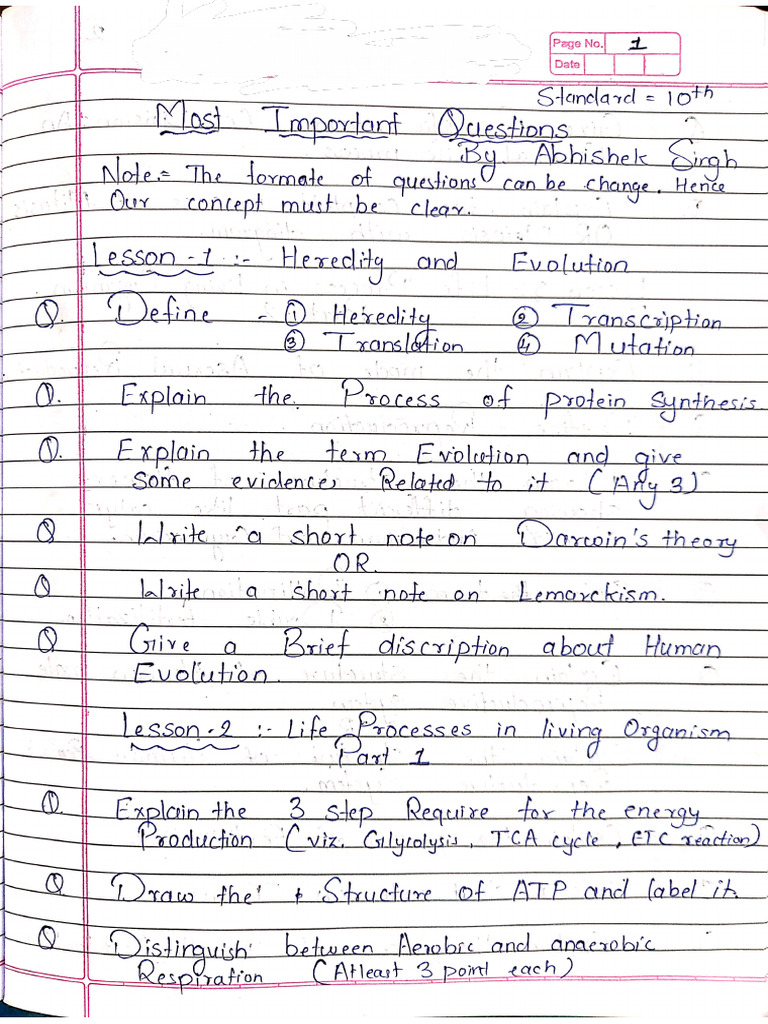 Page No. 1
Date
Standard = 10th
Most Important Questions
By Abhishek Singh
Note:= The formate of questions can be change. Hence
Our concept must be clear.
Lesson-1 :- Heredity and Evolution
Q. Define - ① Heredity ② Transcription
③ Translation ④ Mutation
Q. Explain the Process of protein synthesis
Q. Explain the term Evolution and give
some evidences Related to it (Any 3)
Q Write a short note on Darwin's theory
OR
Q Write a short note on Lemarckism.
Q Give a Brief discription about Human
Evolution.
Lesson-2 :- Life Processes in living Organism
Part 1
Q. Explain the 3 step Require for the energy
Production (viz. Glycolysis, TCA cycle, ETC reaction)
Q Draw the Structure of ATP and label it.
Q Distinguish between Aerobic and anaerobic
Respiration (Atleast 3 point each)